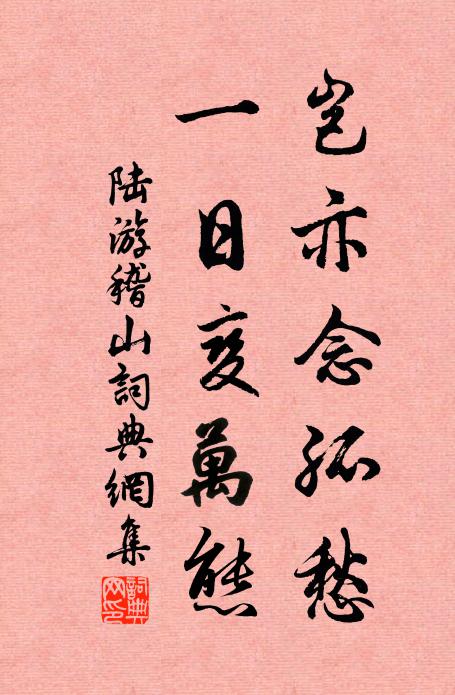 岂亦念孤愁
一日变萬態
陆游稽山詞典網集
詞典网印